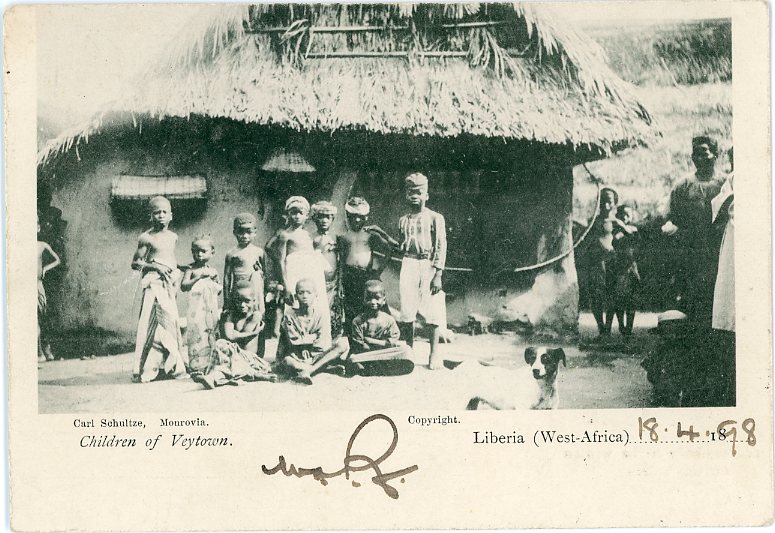 Carl Schultze, Monrovia.
Copyright.
Children of Veytown.
Liberia (West-Africa) 18.4.1898